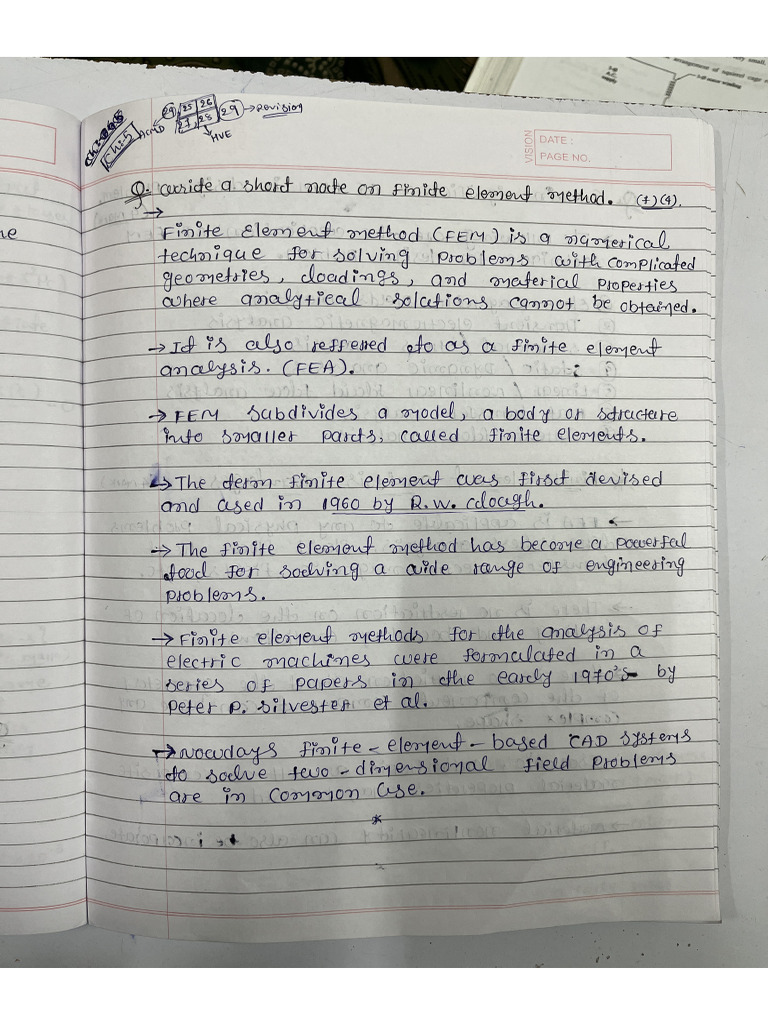 Ch:5
29, 25 26
27, 28 29 → Revision
ACMD
HVE
VISION
DATE :
PAGE NO.
Q. write a short note on finite element method. (7)(4).
→
Finite Element method (FEM) is a numerical
technique for solving problems with complicated
geometries, loadings, and material properties
where analytical solutions cannot be obtained.
→ It is also reffered to as a finite element
analysis. (FEA).
→ FEM subdivides a model, a body or structure
into smaller parts, called finite elements.
→ The term finite element was first devised
and used in 1960 by R.W. clough.
→ The finite element method has become a powerful
tool for solving a wide range of engineering
problems.
→ Finite element methods for the analysis of
electric machines were formulated in a
series of papers in the early 1970's by
Peter P. Silvester et al.
→ Nowdays finite-element-based CAD systems
to solve two-dimensional field problems
are in common use.
*